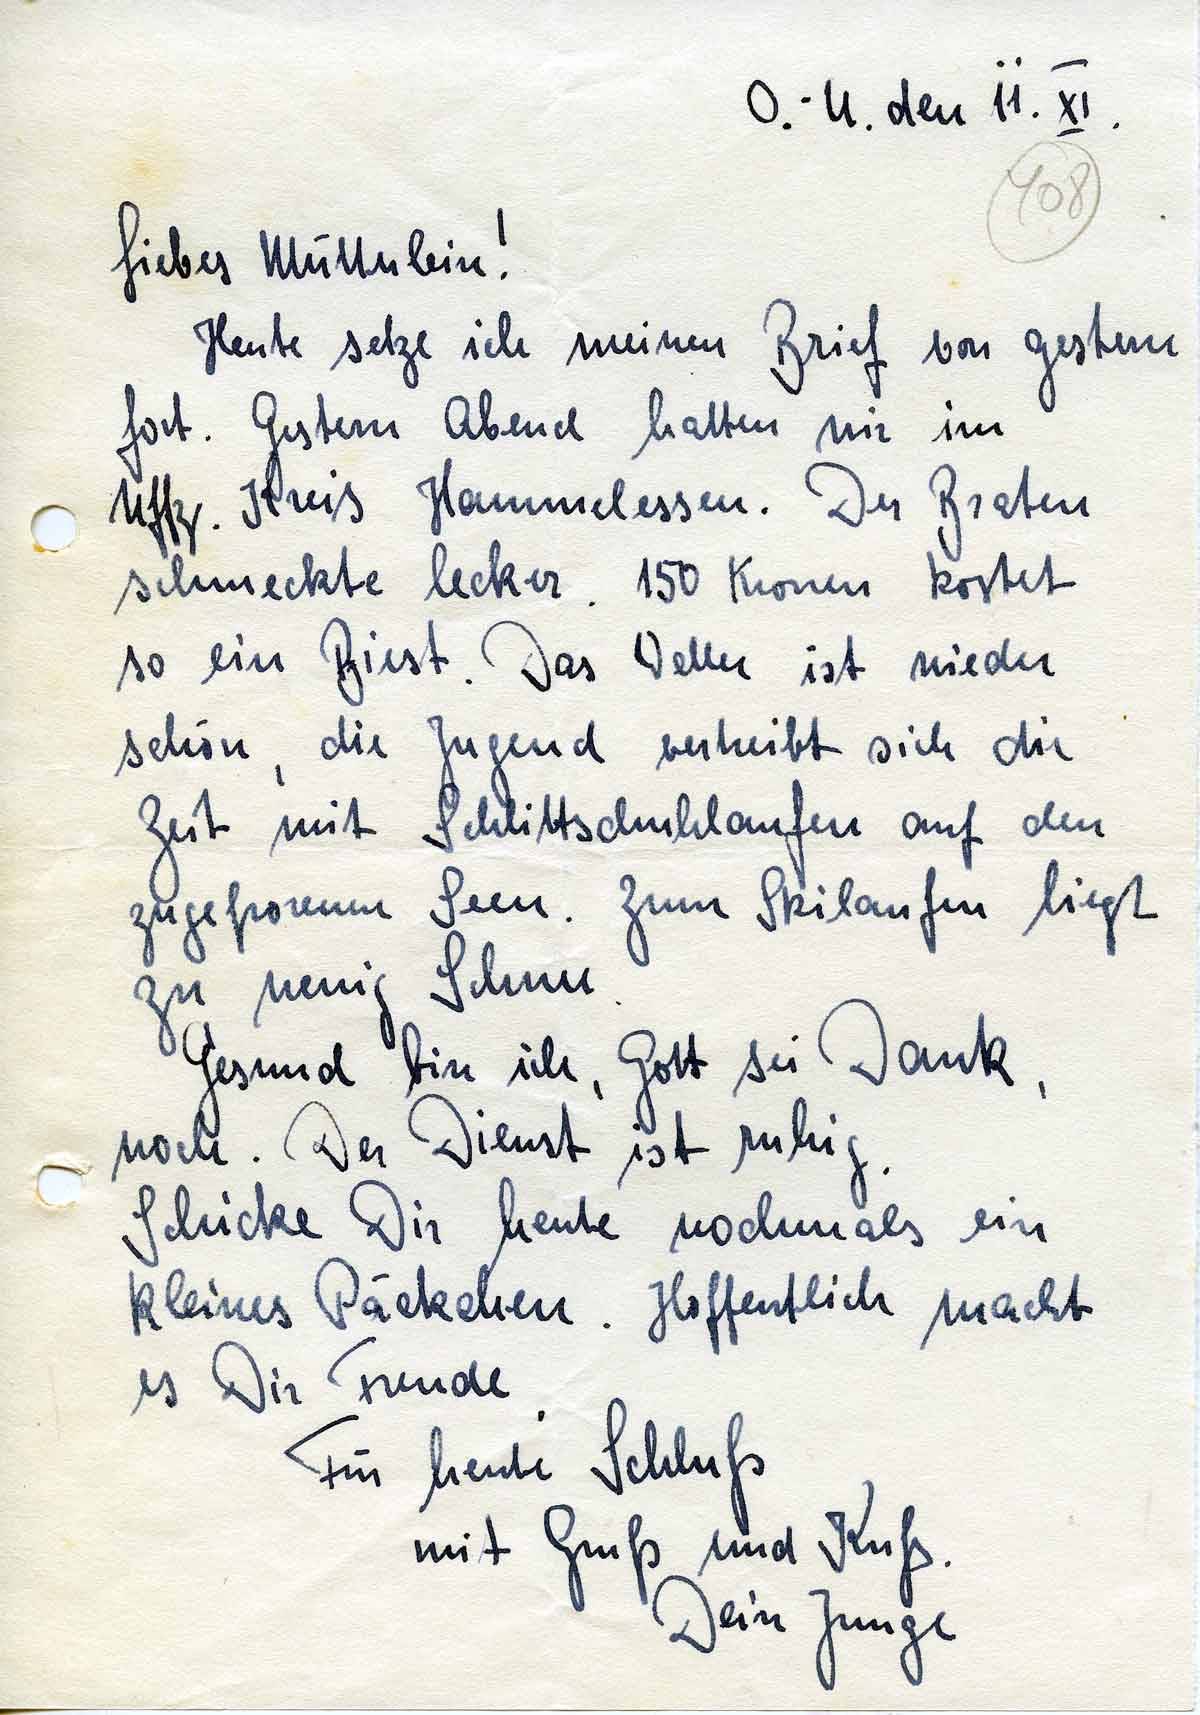 O.-U. den 11. XI.
408
Liebes Mütterlein!
Heute setze ich meinen Brief von gestern
fort. Gestern Abend hatten wir im
Uffz. Kreis Hammelessen. Der Braten
schmeckte lecker. 150 Kronen kostet
so ein Biest. Das Wetter ist wieder
schön, die Jugend vertreibt sich die
Zeit mit Schlittschuhlaufen auf den
zugefrorenen Seen. Zum Skilaufen liegt
zu wenig Schnee.
Gesund bin ich, Gott sei Dank,
noch. Der Dienst ist ruhig.
Schicke Dir heute nochmals ein
kleines Päckchen. Hoffentlich macht
es Dir Freude.
Für heute Schluß
mit Gruß und Kuß.
Dein Junge